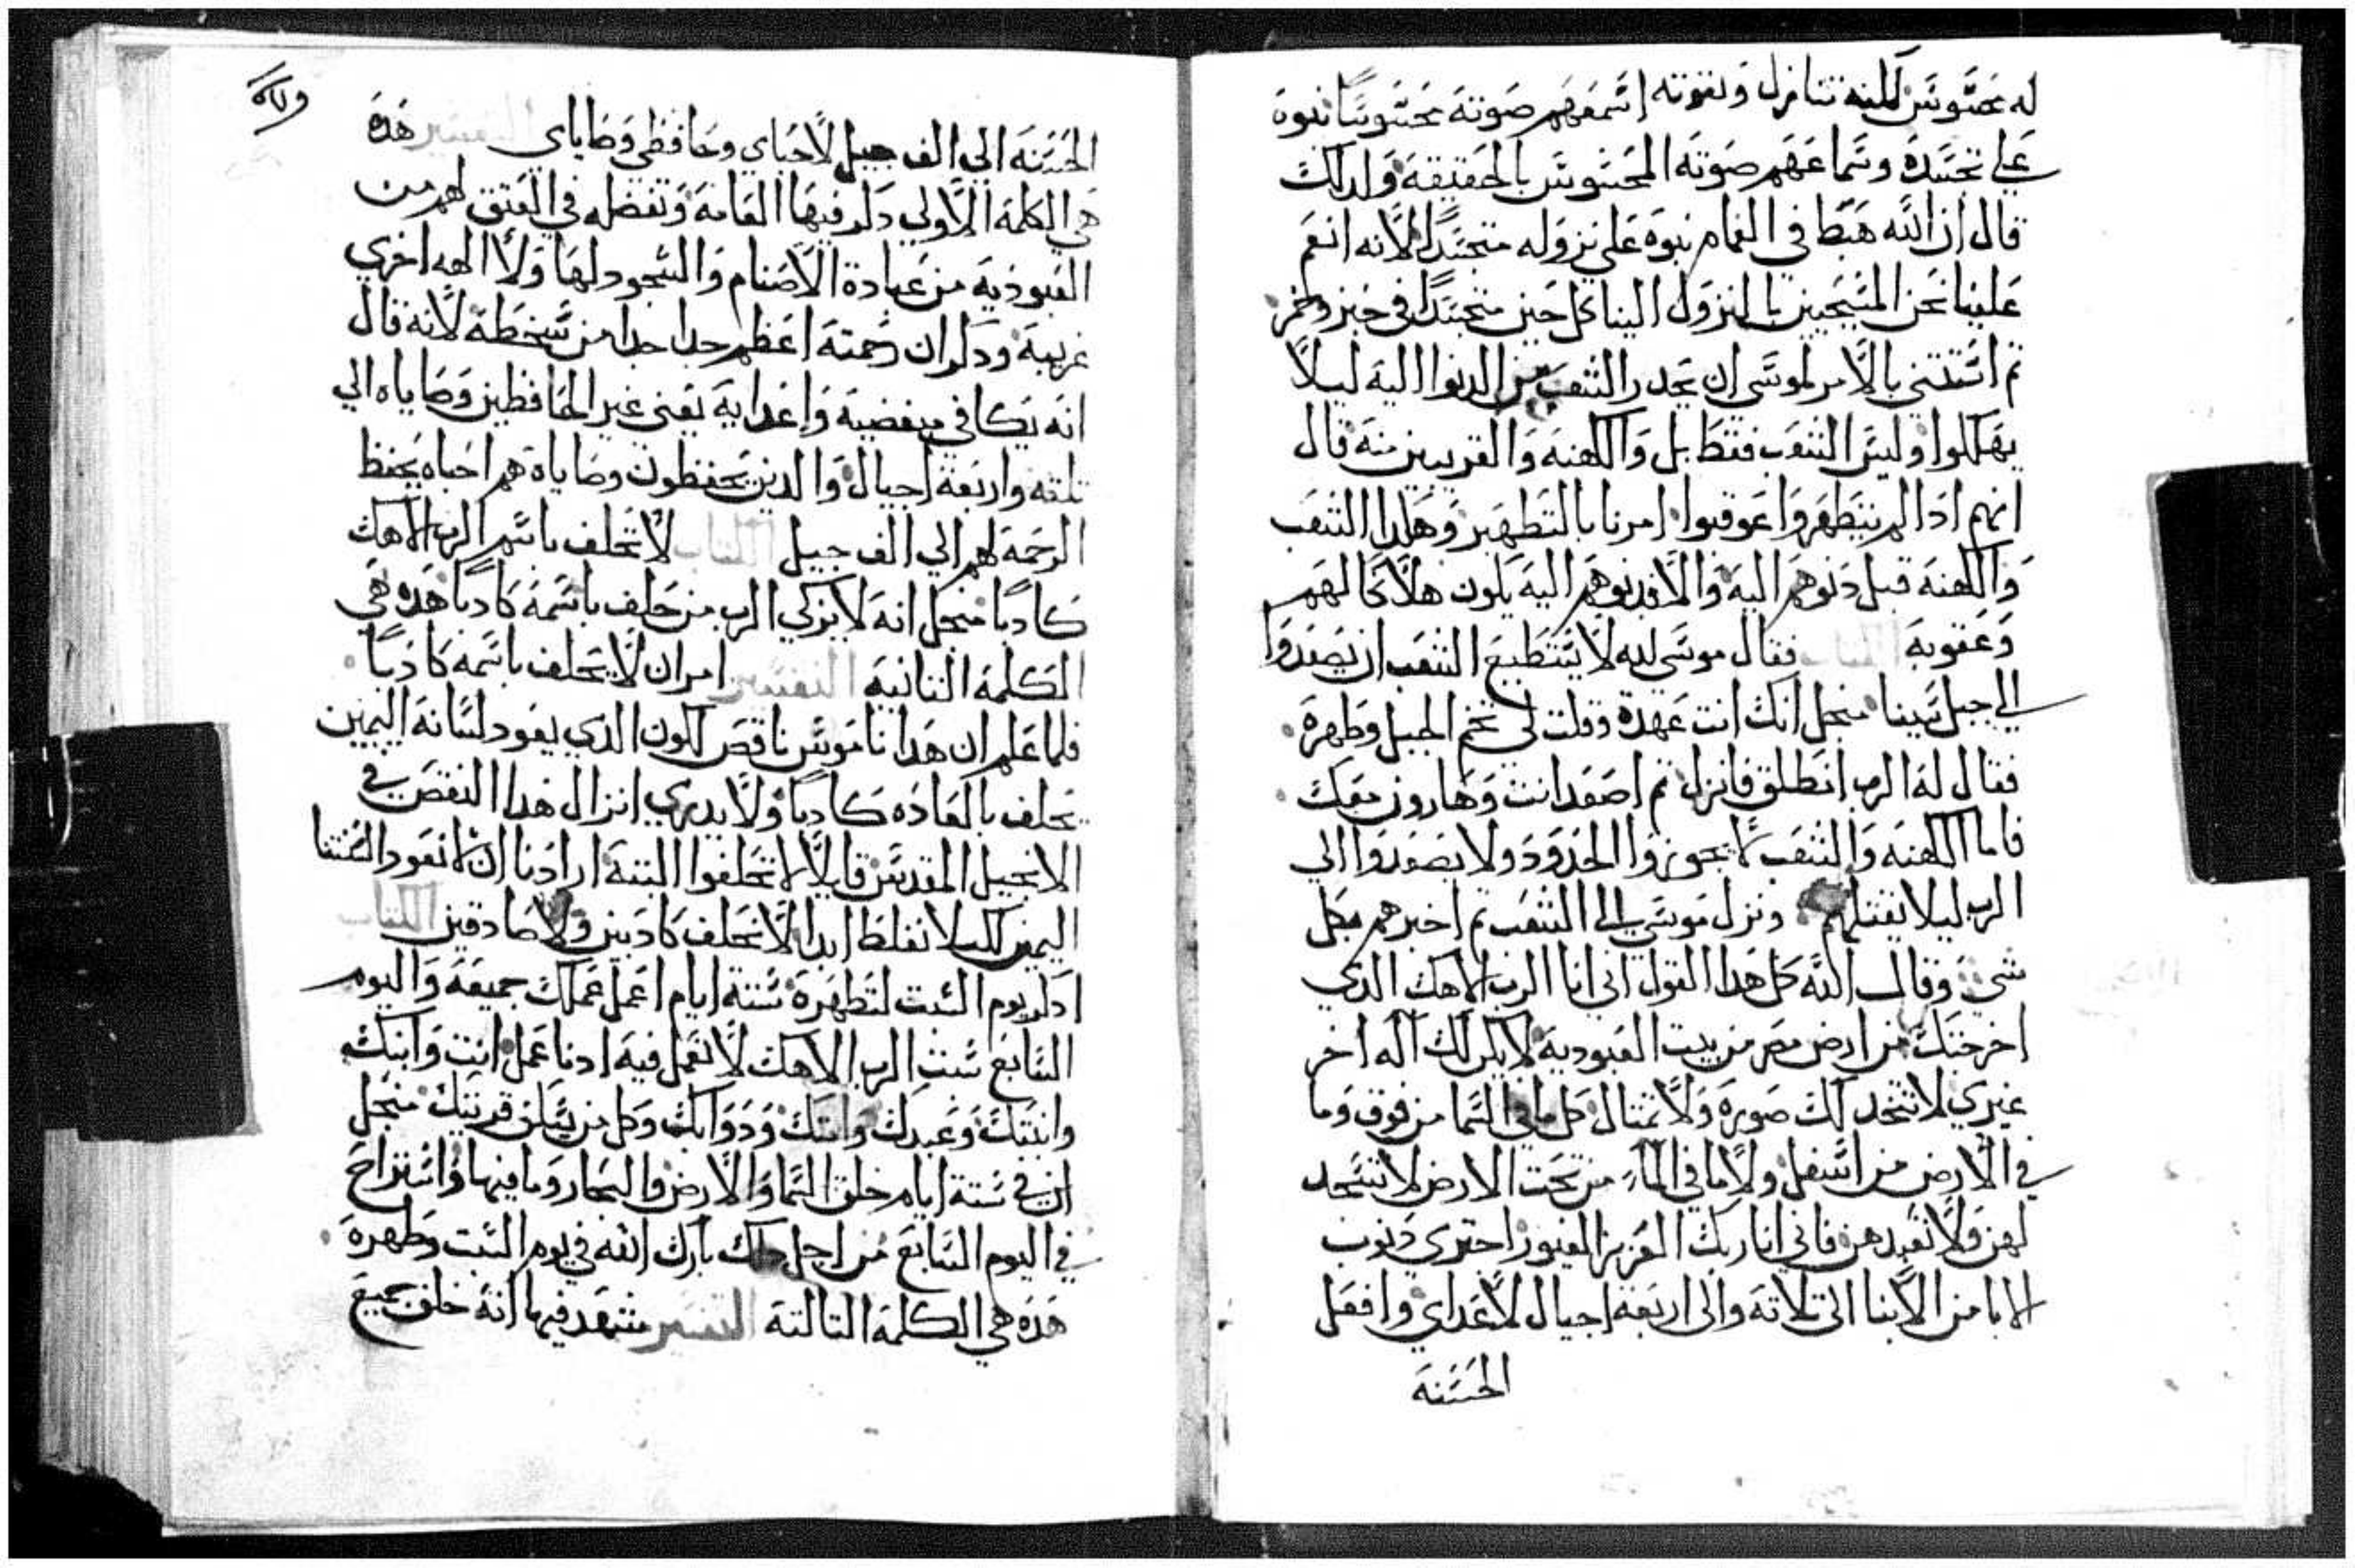 له محسوس لكنه تنازل وبقوته اسمعهم صوته محسوسا نبوة
على تجسده وسماعهم صوته المحسوس بالحقيقة ولدلك
قال ان الله هبط في الغمام نبوة على نزوله متجسدا لانه انعم
علينا نحن المسيحيين بالنزول الينا كل حين متجسدا في خبز وخمر
تم استثنى بالامر لموسى ان يحدر الشعب من الدنوا اليه ليلا
يهلكوا وليس الشعب فقط بل والكهنه والقريبين منه قال
انهم ادا لم يتطهروا عوقبوا امرنا بالتطهير وهكدا الشعب
والكهنه قبل دنوهم اليه والا فدنوهم اليه يكون هلاكا لهم
وعقوبة الكتاب فقال موسى لله لا يستطيع الشعب ان يصعدوا
الى جبل سينا منجل انك انت عهدة وقلت لي تخم الجبل وطهره
فقال له الرب انطلق فانزل تم اصعد انت وهارون معك
فاما الكهنه والشعب لا يجوزوا الحدود ولا يصعدوا الي
الرب ليلا يقتلهم ونزل موسى الى الشعب تم اخبرهم بكل
شي وقال الله كل هدا القول اني انا الرب الاهك الدي
اخرجتك من ارض مصر من بيت العبودية لا يكن لك اله اخر
غيري لا تتخد لك صورة ولا تمتال كل ما في السما من فوق وما
في الارض من اسفل ولا ما في الماء من تحت الارض لا تسجد
لهن ولا تعبدهن فاني انا ربك العزيز الغيور اجتزي دنوب
الابا من الابنا الى تلاته والى اربعة اجيال لاعداي وافعل
الحسنة
الحسنه الي الف جيل لاحباي وحافظي وصاياي التفسير هده
هي الكلمة الاولي دكر فيها العامة وتفضله في العتق لهم من
العبودية من عبادة الاصنام والسجود لها ولا الهه اخري
غريبة ودكر ان رحمته اعظم جدا جدا من سخطه لانه قال
انه يكافي مبغضيه واعدايه يعني غير الحافظين وصاياه الي
تلته واربعة اجيال والدين يحفظون وصاياه هم احباه يحفظ
الرحمة لهم الي الف جيل الكتاب لا تحلف باسم الرب الاهك
كادبا منجل انه لا يزكي الرب من حلف باسمه كادبا هده هي
الكلمة التانيه التفسير امر ان لا تحلف باسمه كادبا
فلما علم ان هدا ناموس ناقص لكون الدي يعود لسانه اليمين
يحلف بالعاده كادبا ولا يدري ازال هدا النقص في
الانجيل المقدس قايلا لا تحلفوا البتة ارادنا ان لا نعود السنتنا
اليمين لكيلا نغلط ابدا لا نحلف كادبين ولا صادقين الكتاب
ادكر يوم السبت لتطهره ستة ايام اعمل عملك جميعه واليوم
السابع سبت الرب الاهك لا تعمل فيه ادنا عمل انت وابنك
وابنتك وعبدك وامتك ودوابك وكل من يسكن قريتك منجل
ان في ستة ايام خلق السما والارض والبحار وما فيها واستراح
في اليوم السابع من اجل دلك بارك الله في يوم السبت وطهره
هده هي الكلمة التالتة التفسير شهد فيها انه خلق جميع